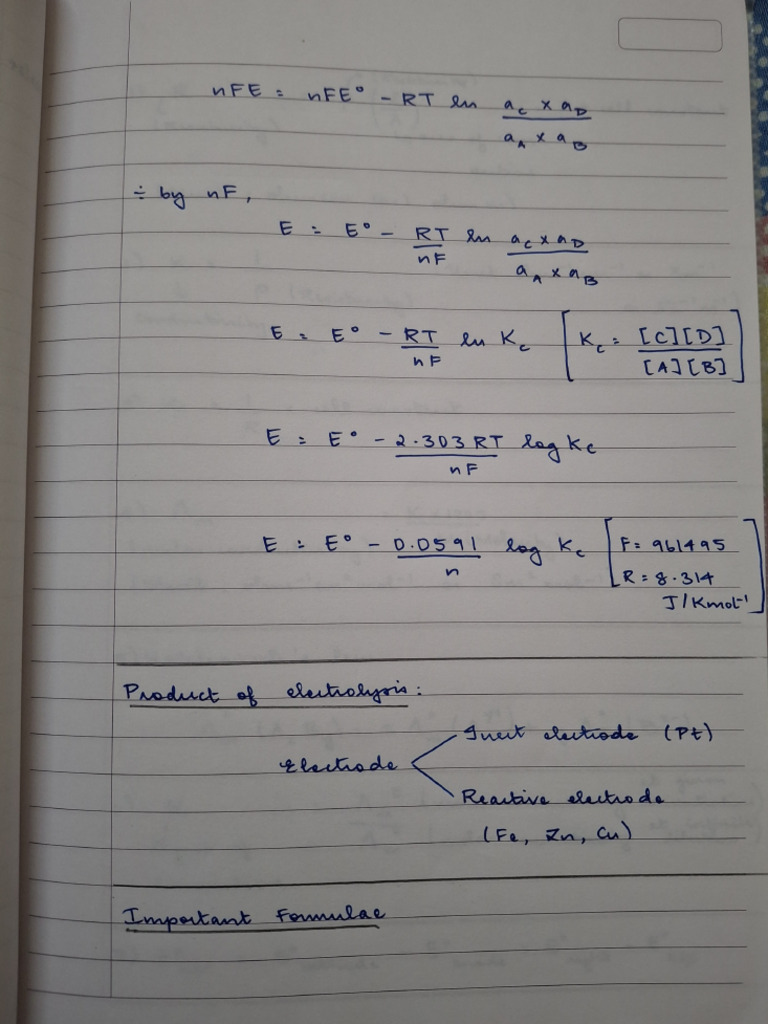 nFE = nFE° - RT ln (a_C × a_D)/(a_A × a_B)
÷ by nF,
E = E° - RT/nF ln (a_C × a_D)/(a_A × a_B)
E = E° - RT/nF ln K_c [K_c = [C][D]/[A][B]]
E = E° - 2.303 RT/nF log K_c
E = E° - 0.0591/n log K_c [F = 961495
R = 8.314
J/Kmol⁻¹]
Product of electrolysis:
Electrode < Inert electrode (Pt)
Reactive electrode
(Fe, Zn, Cu)
Important Formulae